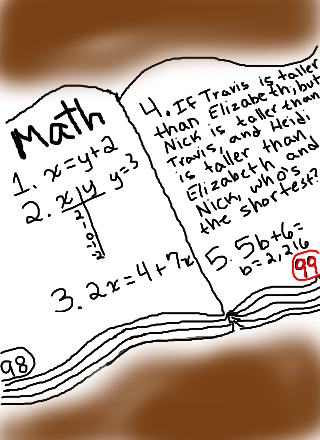 Math
1. x=y+2
y=3
2. x y
2
1
0
-1
-2
3. 2x=4+7x
98
4. If Travis is taller
than Elizabeth, but
Nick is taller than
Travis, and Heidi
is taller than
Elizabeth and
Nick, who's
the shortest?
5. 5b+6=
b=2,216
99